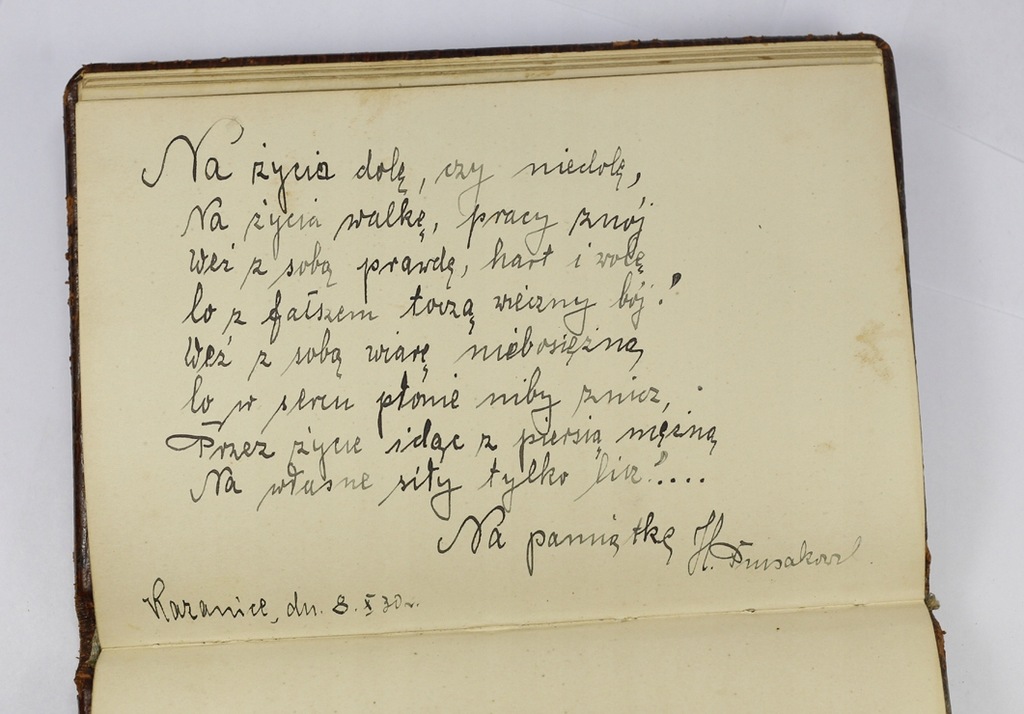 Na życia dolę, czy niedolę,
Na życia walkę, pracy znój
Weź z sobą prawdę, hart i wolę
Co z fałszem toczą wieczny bój!
Weź z sobą wiarę niebosiężną
Co w sercu płonie niby znicz,
Przez życie idąc z piersią mężną
Na własne siły tylko licz!....
Na pamiątkę H.
Kazanice, dn. 8. X 30 r.